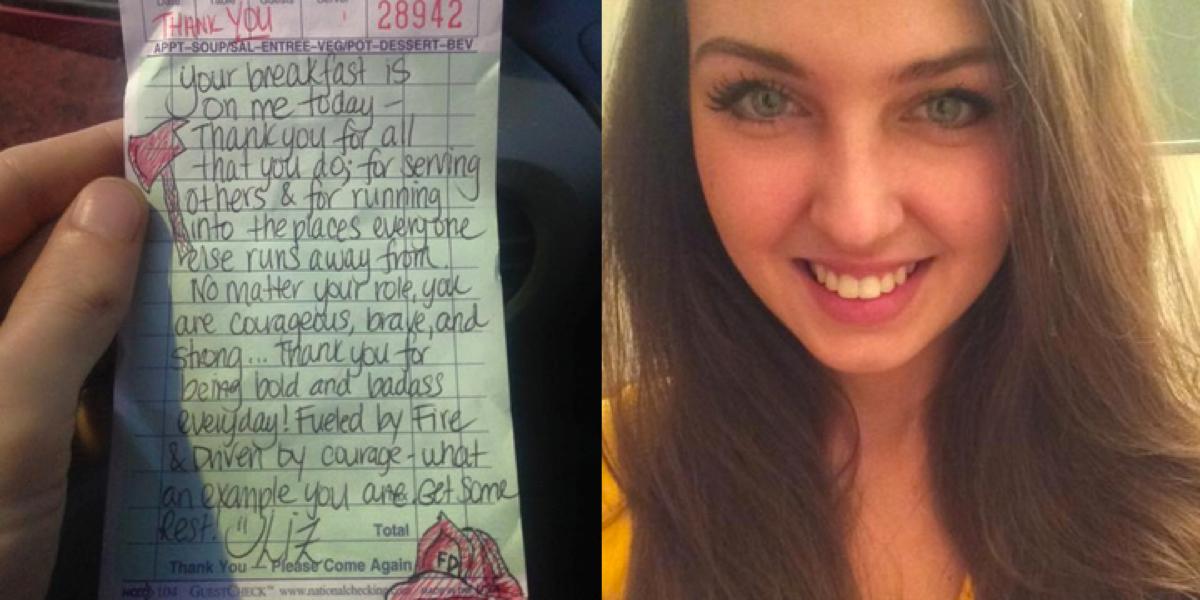 Date Table Guests Server
THANK YOU
28942
APPT-SOUP/SAL-ENTREE-VEG/POT-DESSERT-BEV
Your breakfast is
on me today –
Thank you for all
that you do; for serving
others & for running
into the places everyone
else runs away from.
No matter your role, you
are courageous, brave, and
strong... Thank you for
being bold and badass
everyday! Fueled by Fire
& Driven by courage - what
an example you are. Get some
Rest.
Liz
Total
FD
Thank You – Please Come Again
104 GUESTCHECK™ www.nationalchecking